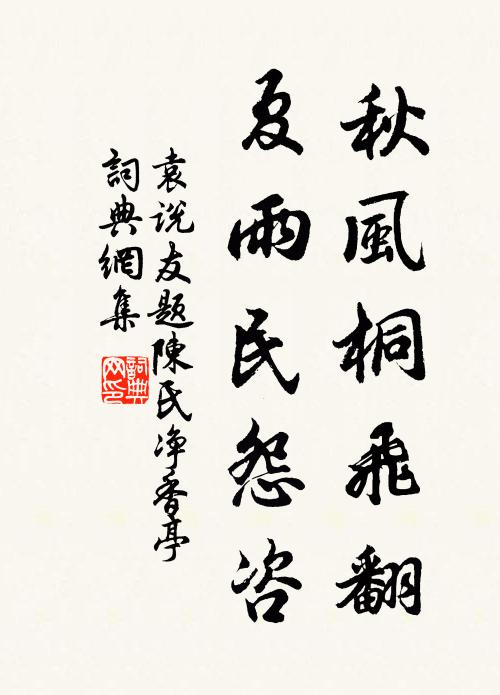 秋風桐飛翻
夏雨民怨咨
袁说友题陳民净香亭
詞典網集
詞典網印